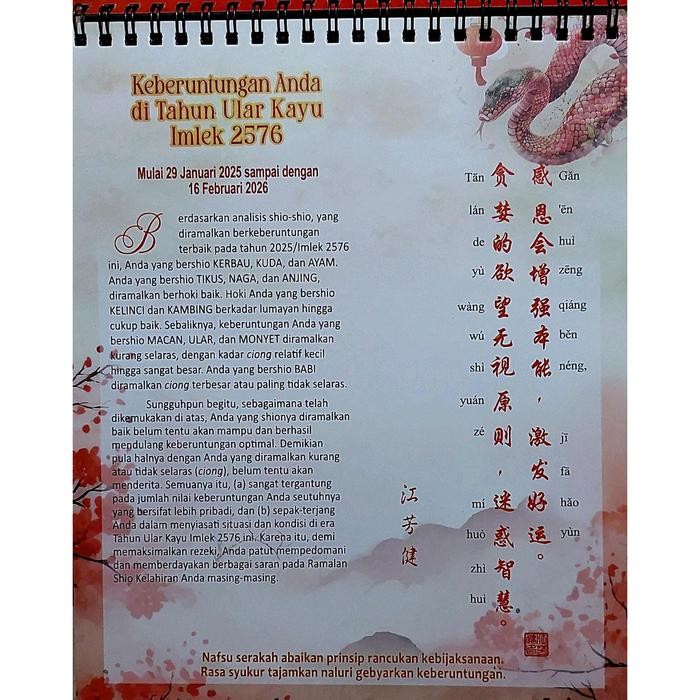 Keberuntungan Anda
di Tahun Ular Kayu
Imlek 2576
Mulai 29 Januari 2025 sampai dengan
16 Februari 2026
Berdasarkan analisis shio-shio, yang
diramalkan berkeberuntungan
terbaik pada tahun 2025/Imlek 2576
ini, Anda yang bershio KERBAU, KUDA, dan AYAM.
Anda yang bershio TIKUS, NAGA, dan ANJING,
diramalkan berhoki baik. Hoki Anda yang bershio
KELINCI dan KAMBING berkadar lumayan hingga
cukup baik. Sebaliknya, keberuntungan Anda yang
bershio MACAN, ULAR, dan MONYET diramalkan
kurang selaras, dengan kadar ciong relatif kecil
hingga sangat besar. Anda yang bershio BABI
diramalkan ciong terbesar atau paling tidak selaras.
Sungguhpun begitu, sebagaimana telah
dikemukakan di atas, Anda yang shionya diramalkan
baik belum tentu akan mampu dan berhasil
mendulang keberuntungan optimal. Demikian
pula halnya dengan Anda yang diramalkan kurang
atau tidak selaras (ciong), belum tentu akan
menderita. Semuanya itu, (a) sangat tergantung
pada jumlah nilai keberuntungan Anda seutuhnya
yang bersifat lebih pribadi, dan (b) sepak-terjang
Anda dalam menyiasati situasi dan kondisi di era
Tahun Ular Kayu Imlek 2576 ini. Karena itu, demi
memaksimalkan rezeki, Anda patut mempedomani
dan memberdayakan berbagai saran pada Ramalan
Shio Kelahiran Anda masing-masing.
感恩会增强本能，激发好运。
Gǎn 'ēn huì zēng qiáng běn néng, jī fā hǎo yùn
贪婪的欲望无视原则，迷惑智慧。
Tān lán de yù wàng wú shì yuán zé mí huò zhì huì
江芳健
Nafsu serakah abaikan prinsip rancukan kebijaksanaan.
Rasa syukur tajamkan naluri gebyarkan keberuntungan.